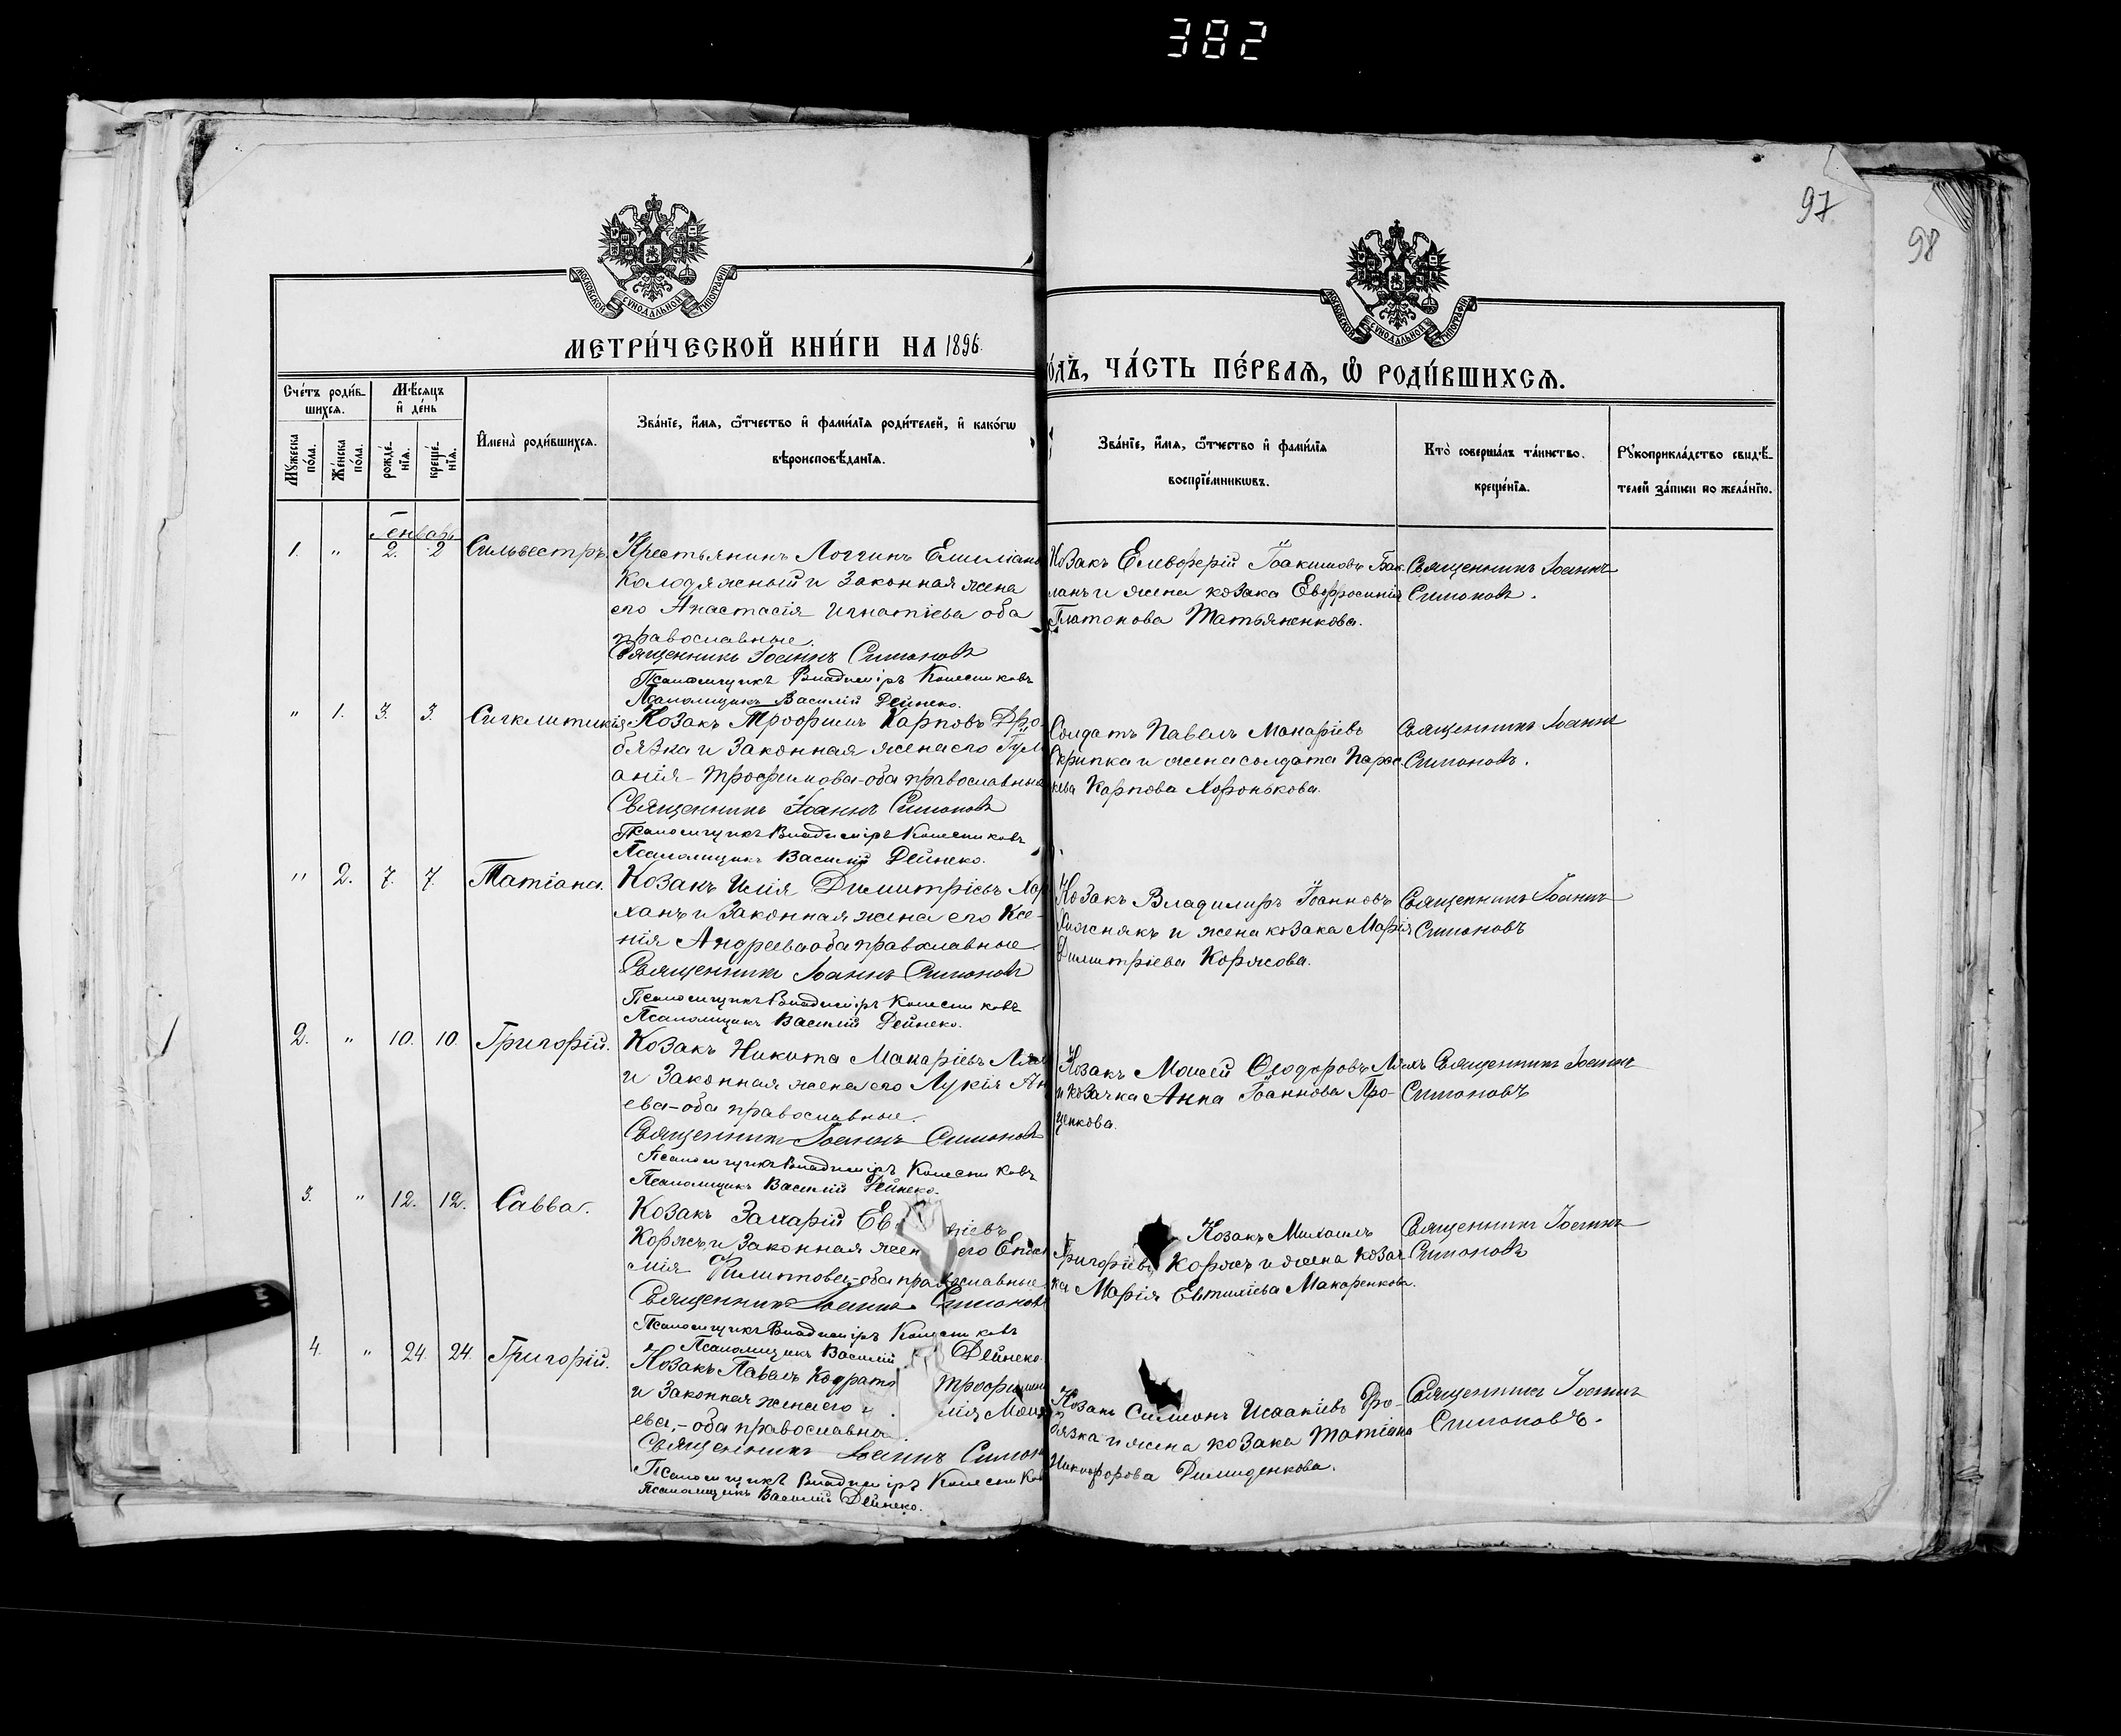 382
97
98
МОСКОВСКОЙ СѴНОДАЛЬНОЙ ТИПОГРАФІИ
МОСКОВСКОЙ СѴНОДАЛЬНОЙ ТИПОГРАФІИ
МЕТРИ́ЧЕСКОЙ КНИ́ГИ НА 1896
О́ДЪ, ЧА́СТЬ ПЕ́РВАѦ, Ѡ҆ РОДИ́ВШИХСѦ.
Сче́тъ роди́в-
шихсѧ.
Мѣ́сѧцъ
и҆ де́нь
Мꙋ́жеска
по́ла.
Же́нска
по́ла.
рожде́-
нїѧ.
креще́-
нїѧ.
И҆мена̀ роди́вшихсѧ.
Зва́нїе, и҆́мѧ, ѻ҆́тчество и҆ фами́лїѧ роди́телей, и҆ како́гѡ
вѣроисповѣ́данїѧ.
Зва́нїе, и҆́мѧ, ѻ҆́тчество и҆ фами́лїѧ
воспрїе́мникѡвъ.
Кто̀ соверша́лъ та́инство
креще́нїѧ.
Рꙋкоприкла́дство свидѣ́-
телей за́писи по жела́нїю.
Январь
1. " 2. 2 Сильвестръ.
Крестьянинъ Логгинъ Емиліано
Колодяжный и законная жена
его Анастасія Игнатіева оба
православные.
Священникъ Іоаннъ Симоновъ
Псаломщикъ Владиміръ Колесниковъ
Псаломщикъ Василій Дейнеко.
Козакъ Елевферій Іоакимовъ
и жена козака Евфросинія
Платонова Татьяненкова.
Священникъ Іоаннъ
Симоновъ.
" 1. 3. 3. Сигклитикія
Козакъ Трофимъ Карповъ Дро-
бязка и законная жена его Іул
анія Трофимова-оба православные
Священникъ Іоаннъ Симоновъ
Псаломщикъ Владиміръ Колесниковъ
Псаломщикъ Василій Дейнеко.
Солдатъ Павелъ Макаріевъ
Скрипка и жена солдата Парас
кева Карпова Хоронькова.
Священникъ Іоаннъ
Симоновъ.
" 2. 7. 7. Татіана.
Козакъ Илія Димитріевъ Хар
ханъ и законная жена его Ксе-
нія Андреева оба православные
Священникъ Іоаннъ Симоновъ
Псаломщикъ Владиміръ Колесниковъ
Псаломщикъ Василій Дейнеко.
Козакъ Владимиръ Іоанновъ
и жена козака Марія
Димитріева Коржова.
Священникъ Іоаннъ
Симоновъ
2. " 10. 10 Григорій.
Козакъ Никита Макаріевъ
и законная жена его Лукія
ева-оба православные.
Священникъ Іоаннъ Симоновъ
Псаломщикъ Владиміръ Колесниковъ
Псаломщикъ Василій Дейнеко.
Козакъ Моисей Ѳеодоровъ Ляхъ
и козачка Анна Іоаннова Про-
ценкова.
Священникъ Іоаннъ
Симоновъ
3. " 12. 12. Савва.
Козакъ Захарій Ев ніевъ
Коржъ и законная жен его
мія Филиппова-оба православные
Священникъ Іоаннъ Симоновъ
Псаломщикъ Владиміръ Колесниковъ
Псаломщикъ Василій Дейнеко.
Козакъ Михаилъ
Григоріевъ Коржъ и жена коза
ка Марія Евтихіева Макаренкова.
Священникъ Іоаннъ
Симоновъ
4. " 24. 24. Григорій.
Козакъ Павелъ Кодрато Трофимен
и законная жена его лія
ева,-оба православны
Священникъ Іоаннъ Симон
Псаломщикъ Владиміръ Колесников
Псаломщикъ Василій Дейнеко.
Козакъ Симеонъ Исаакіевъ Дро-
бязка и жена козака Татіана
Никифорова Демиденкова.
Священникъ Іоаннъ
Симоновъ.